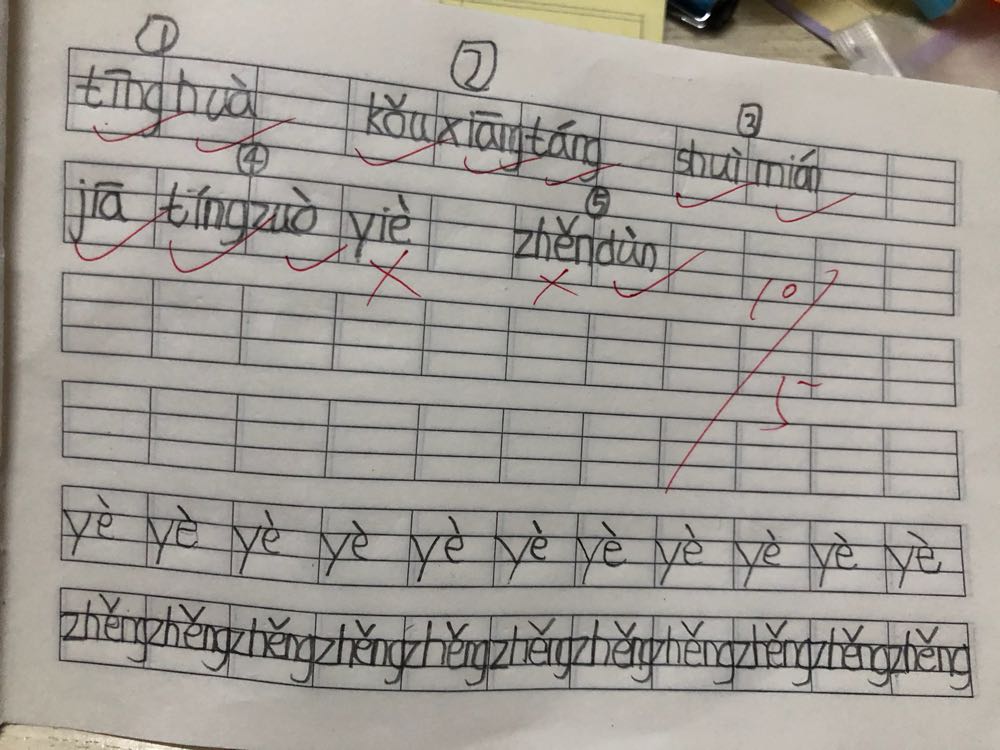 ① ② ③
tīng huà kǒu xiāng táng shuì mián
④ ⑤
jiā tíng zuò yiè zhěn dùn
10
5
yè yè yè yè yè yè yè yè yè yè yè
zhěng zhěng zhěng zhěng zhěng zhěng zhěng zhěng zhěng zhěng zhěng